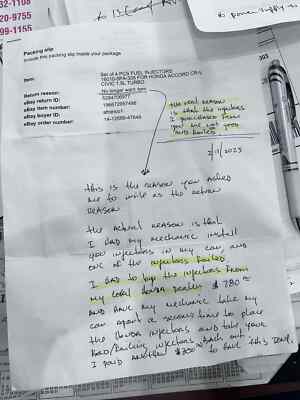 32-1108
20-9755
99-1155
to
Packing slip
Include this packing slip inside your package
Item:
Set of 4 PCS FUEL INJECTORS
16010-5PA-305 FOR HONDA ACCORD CR-V
CIVIC 1.5L TURBO
Return reason:
No longer want item
eBay return ID:
eBay item number:
eBay buyer ID:
eBay order number:
the real reason
is that the injectors
I purchased from
you are not good
and failed
this is the reason you asked
me to write as the return
reason
the actual reason is that
I had my mechanic install
you injectors in my car and
one of the injectors failed
I had to buy the injectors from
my local Honda dealer $780
and have my mechanic take my
car apart a second time to place
the Honda injectors and take your
Bad/leaking injectors back out
I paid another to have this done.